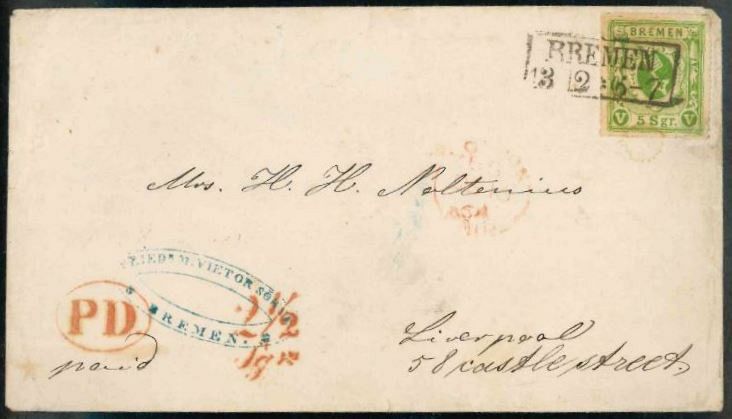 BREMEN
V 5 Sgr. V
BREMEN
13 2 * 6-7
Mrs. H. H. Noltenius
FRIEDR M. VIETOR SÖHNE
* BREMEN. *
PD
2 1/2
Sgr
Liverpool
58 castle street.
paid